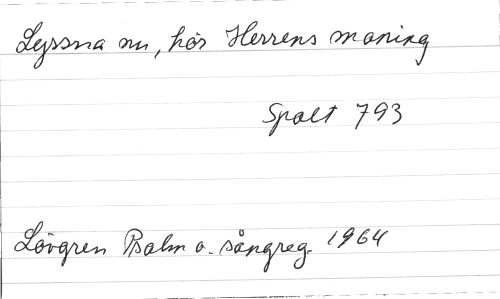 Lyssna nu, hör Herrens maning
Spalt 793
Lövgren Psalm o. sångreg. 1964